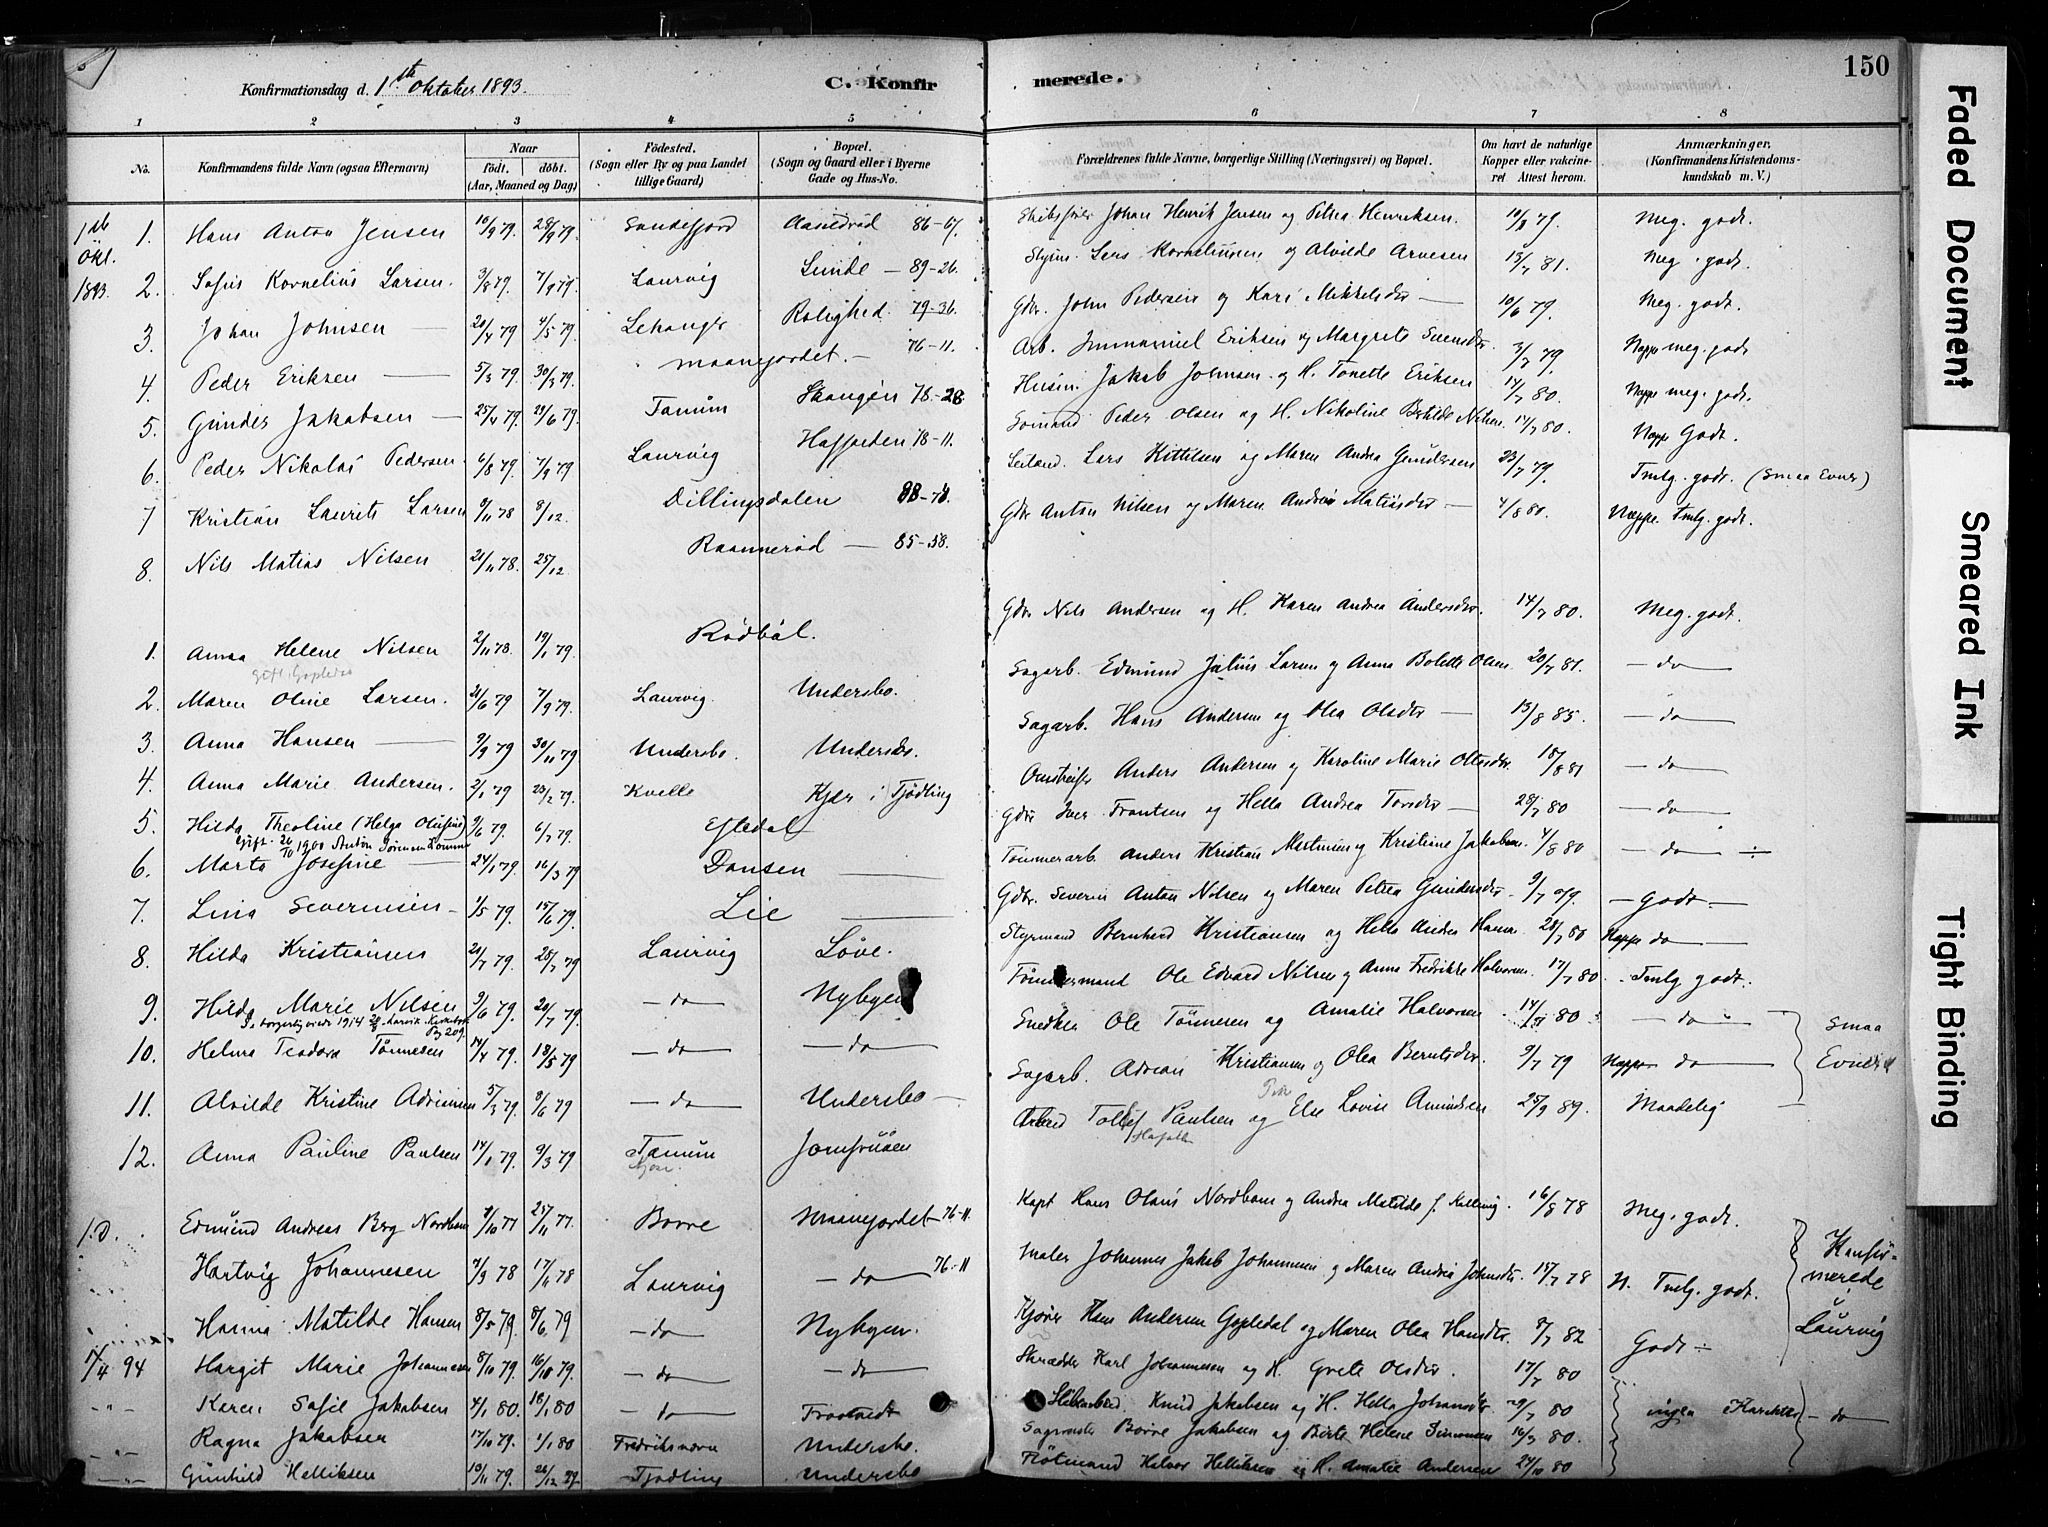 150
Konfirmationsdag d. 1ste Oktober 1893.
C. Konfirmerede.
1 2 3 4 5 6 7 8
No. Konfirmandens fulde Navn (ogsaa Efternavn) Naar født. døbt. (Aar, Maaned og Dag) Fødested. (Sogn eller By og paa Landet tillige Gaard) Bopæl. (Sogn og Gaard eller i Byerne Gade og Hus-No. Forældrenes fulde Navne, borgerlige Stilling (Næringsvei) og Bopæl. Om havt de naturlige Kopper eller vakcineret. Attest herom. Anmærkninger. (Konfirmandens Kristendomskundskab m. V.)
1ste Okt. 1893
1. Hans Anton Jensen 10/9 79. 28/9 79. Sandefjord Aasedrød 86-67. Johan Henrik Jensen og Petra Henriksen. 10/8 79. Meg. godt.
2. Sofus Kornelius Larsen. 3/8 79. 7/9 79. Laurvig Lunde - 89-26. Lars Korneliusen og Alvilde Arvesen 15/7 81. Meg. godt.
3. Johan Johnsen 20/4 79 4/5 79. Rolighed. 79-36. Gbr. John Pedersen og Kari Mikkelsdtr 10/6 79. Meg. godt.
4. Peder Eriksen 5/3 79. 30/3 79. Maanejordet. - 76-11. Arb. Immanuel Eriksen og Margrete 3/7 79. Neppe meg. godt
5. Gunder Jakobsen 25/4 79 29/6 79. Tanum Skaugen 78-28 Husm. Jakob Johnsen og H. Tonette Eriksen 14/7 80. Neppe meg. godt.
6. Peder Nikolai Pedersen. 6/8 79. 7/9 79 Laurvig 78-11. Sømand Peder Olsen og H. Nikoline Betilde Nilsen 14/7 80. Neppe Godt.
7 Kristian Laurits Larsen 9/11 78 8/12. Dillingsdalen Lars Kittilsen og Maren Andrea Gundersen 23/7 79. Tmlg. godt. (Smaa Evner)
8. Nils Matias Nilsen 21/11 78. 25/12 Raannerød - 85-58. Gbr Anton Nilsen og Maren Andrea Matisdtr 4/8 80. Neppe Tmlg. godt.
1. Anna Helene Nilsen 2/11 78. 19/1 79. Rødbøl. Gbr Nils Andersen og H. Karen Andrea Andersdtr. 14/7 80. Meg. godt.
2. Maren Oline Larsen. 21/6 79 7/9 79. Laurvig. Undersbo. Sagarb. Edmund Julius Larsen og Anna Bolette Olsen. 20/7 81. - do -
3. Anna Hansen 9/9 79 30/11 79 Undersbo. Undersbo. Sagarb. Hans Andersen og Olea Olsdtr 13/8 85. - do -
4. Anna Marie Andersen. 2/1 79 23/2 79. Kvelle Kjær i Tjødling Anders Andersen og Karoline Marie Olsdtr 18/8 81 - do -
5. Hilda Theoline (Helga Olufine) 9/6 79. 6/7 79. Eftedal Gbr Iver Frantsen og Hella Andrea Torsdtr 28/7 80 - do -
Gift. 20/10 1900 Anton Sørensen
6. Marta Josefine 24/1 79. 16/3 79 Dansen Tømmerarb. Anders Kristian Martinsen og Kristiane Jakobsen. 4/8 80 - do -
7. Lina Severinsen 1/5 79. 15/6 79. Lie Gbr. Severin Anton Nilsen og Maren Petrea Gundersdtr. 9/7 79. - Godt. -
8. Hilda Kristiansen 21/7 79. 28/7 79 Laurvig Løve. Styrmand Bernhard Kristiansen og Hella Andrea Hansen. 28/7 80 Neppe do -
9. Hilda Marie Nilsen 9/6 79. 20/7 79. - do Nybyen Tømmermand Ole Edvard Nilsen og Anne Fredrikke Halvorsen. 17/7 80 Tmlg godt.
10. Helma Teodora Tønnesen 14/4 79. 18/5 79 - do - - do - Snedker Ole Tønnesen og Amalie Halvorsen 14/7 80 - do - Smaa
11. Alvilde Kristine Adriansen 5/3 79. 8/6 79 - do - Undersbo Sagarb. Adrian Kristiansen og Olea Berntsdtr. 9/7 79 Neppe do Evner
12. Anna Pauline Paulsen 14/1 79. 9/3 79 Tanum Jomfruøen Tollef Paulsen og Else Lovise Amundsen 25/9 89. Maadelig
Edmund Andreas Berg Nordbom 9/10 77 25/11 77. Borre Maanejordet 76-11 Kapt Hans Olaus Nordbom og Andrea Matilde f. 16/8 78 Meg. godt.
Hartvig Johannesen 7/9 78 17/11 78 Laurvig - do - 76-11 Maler Johannes Jakob Johannesen og Maren Andrea Johnsdtr. 15/7 78 N. Tmlg. godt. Konfirmerede i Laurvig
Hanna Matilde Hansen 8/5 79. 8/6 79 - do Nybyen. Kjører Hans Andersen Gopledal og Maren Olea Hansdtr. 8/7 82 Godt
1/4 94 Hargit Marie Johannesen 8/10 79. 16/10 79. - do - - do - Skrædder Karl Johannesen og H. Grete Olsdtr. 17/7 80
Karen Sofie Jakobsen 4/1 80. 18/1 80 - do - Knud Jakobsen og H. Hella Johansdtr 29/7 80 ingen Karakter - do
Ragna Jakobsen 17/10 79. 1/1 80 Fredriksværn Undersbo. Sagmester Børre Jakobsen og Berte Helene Simonsen 16/7 80.
Gunhild Helliksen 13/11 79. 26/12 79 Tjødling Undersbo Fløtmand Halvor Helliksen og H. Amalie Andersen 24/10 80
Faded Document
Smeared Ink
Tight Binding